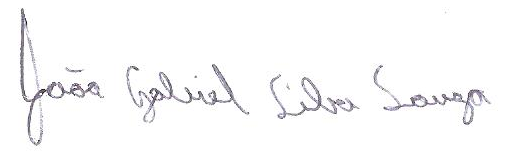 João Gabriel Silva Souza